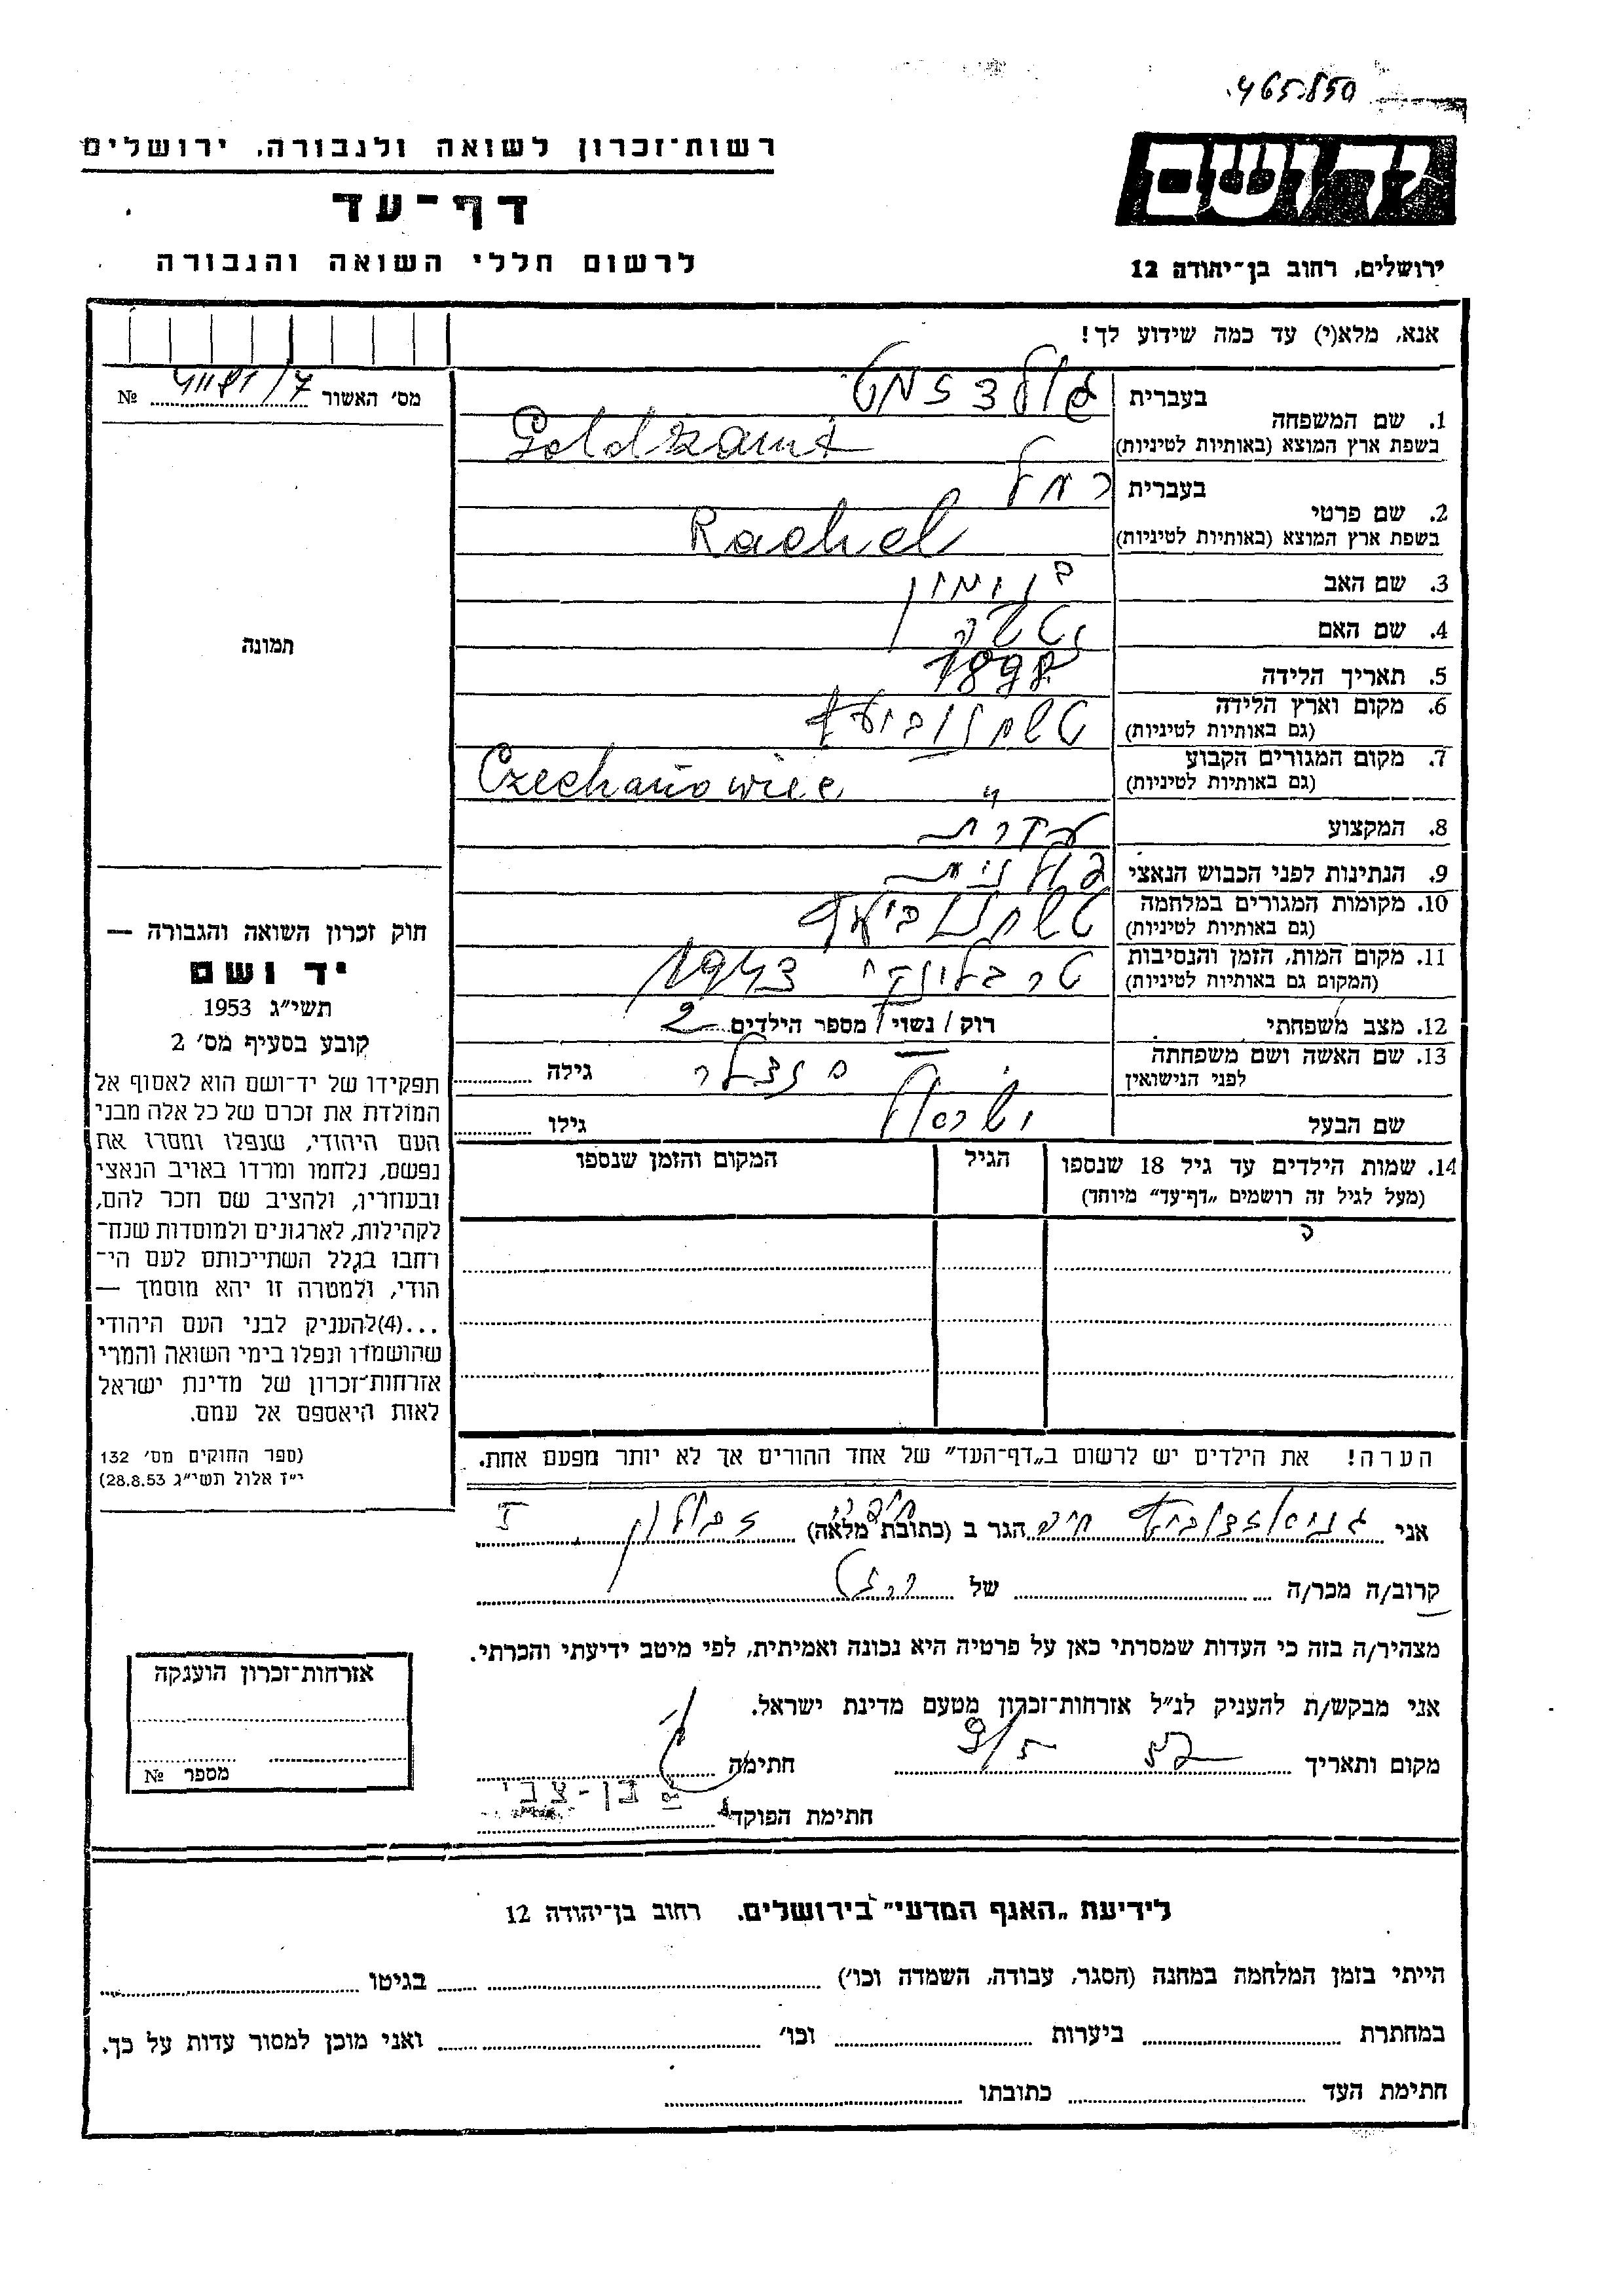 465850
רשות־זכרון לשואה ולגבורה, ירושלים
דף־עד
לרשום חללי השואה והגבורה
יד ושם
ירושלים, רחוב בן־יהודה 12
אנא, מלא(י) עד כמה שידוע לך!
מס׳ האשור №
1. שם המשפחה
בעברית
בשפת ארץ המוצא (באותיות לטיניות) Goldzamt
2. שם פרטי
בעברית רחל
בשפת ארץ המוצא (באותיות לטיניות) Rachel
3. שם האב
4. שם האם
5. תאריך הלידה 1898
6. מקום וארץ הלידה
(גם באותיות לטיניות)
7. מקום המגורים הקבוע
(גם באותיות לטיניות) " Czechanowiec
8. המקצוע
9. הנתינות לפני הכבוש הנאצי פולנית
10. מקומות המגורים במלחמה
(גם באותיות לטיניות)
11. מקום המות, הזמן והנסיבות 1943
(המקום גם באותיות לטיניות)
12. מצב משפחתי רוק / נשוי / מספר הילדים 2
13. שם האשה ושם משפחתה
לפני הנישואין גילה
שם הבעל גילו
14. שמות הילדים עד גיל 18 שנספו
(מעל לגיל זה רושמים „דף־עד״ מיוחד)
הגיל
המקום והזמן שנספו
תמונה
חוק זכרון השואה והגבורה —
יד ושם
תשי״ג 1953
קובע בסעיף מס׳ 2
תפקידו של יד־ושם הוא לאסוף אל
המולדת את זכרם של כל אלה מבני
העם היהודי, שנפלו ומסרו את
נפשם, נלחמו ומרדו באויב הנאצי
ובעוזריו, ולהציב שם וזכר להם,
לקהילות, לארגונים ולמוסדות שנח־
רחבו בגלל השתייכותם לעם הי־
הודי, ולמטרה זו יהא מוסמך —
...(4)להעניק לבני העם היהודי
שהושמדו ונפלו בימי השואה והמרי
אזרחות־זכרון של מדינת ישראל
לאות היאספם אל עמם.
(ספר החוקים מס׳ 132
י״ז אלול תשי״ג 28.8.53)
הערה! את הילדים יש לרשום ב„דף־העד״ של אחד ההורים אך לא יותר מפעם אחת.
אני הגר ב (כתובת מלאה)
קרוב/ה מכר/ה של
מצהיר/ה בזה כי העדות שמסרתי כאן על פרטיה היא נכונה ואמיתית, לפי מיטב ידיעתי והכרתי.
אני מבקש/ת להעניק לנ״ל אזרחות־זכרון מטעם מדינת ישראל.
מקום ותאריך חתימה
בן-צבי
חתימת הפוקד
אזרחות־זכרון הוענקה
מספר №
לידיעת „האגף המדעי״ בירושלים. רחוב בן־יהודה 12
הייתי בזמן המלחמה במחנה (הסגר, עבודה, השמדה וכו׳) בגיטו
במחתרת ביערות וכו׳ ואני מוכן למסור עדות על כך.
חתימת העד כתובתו